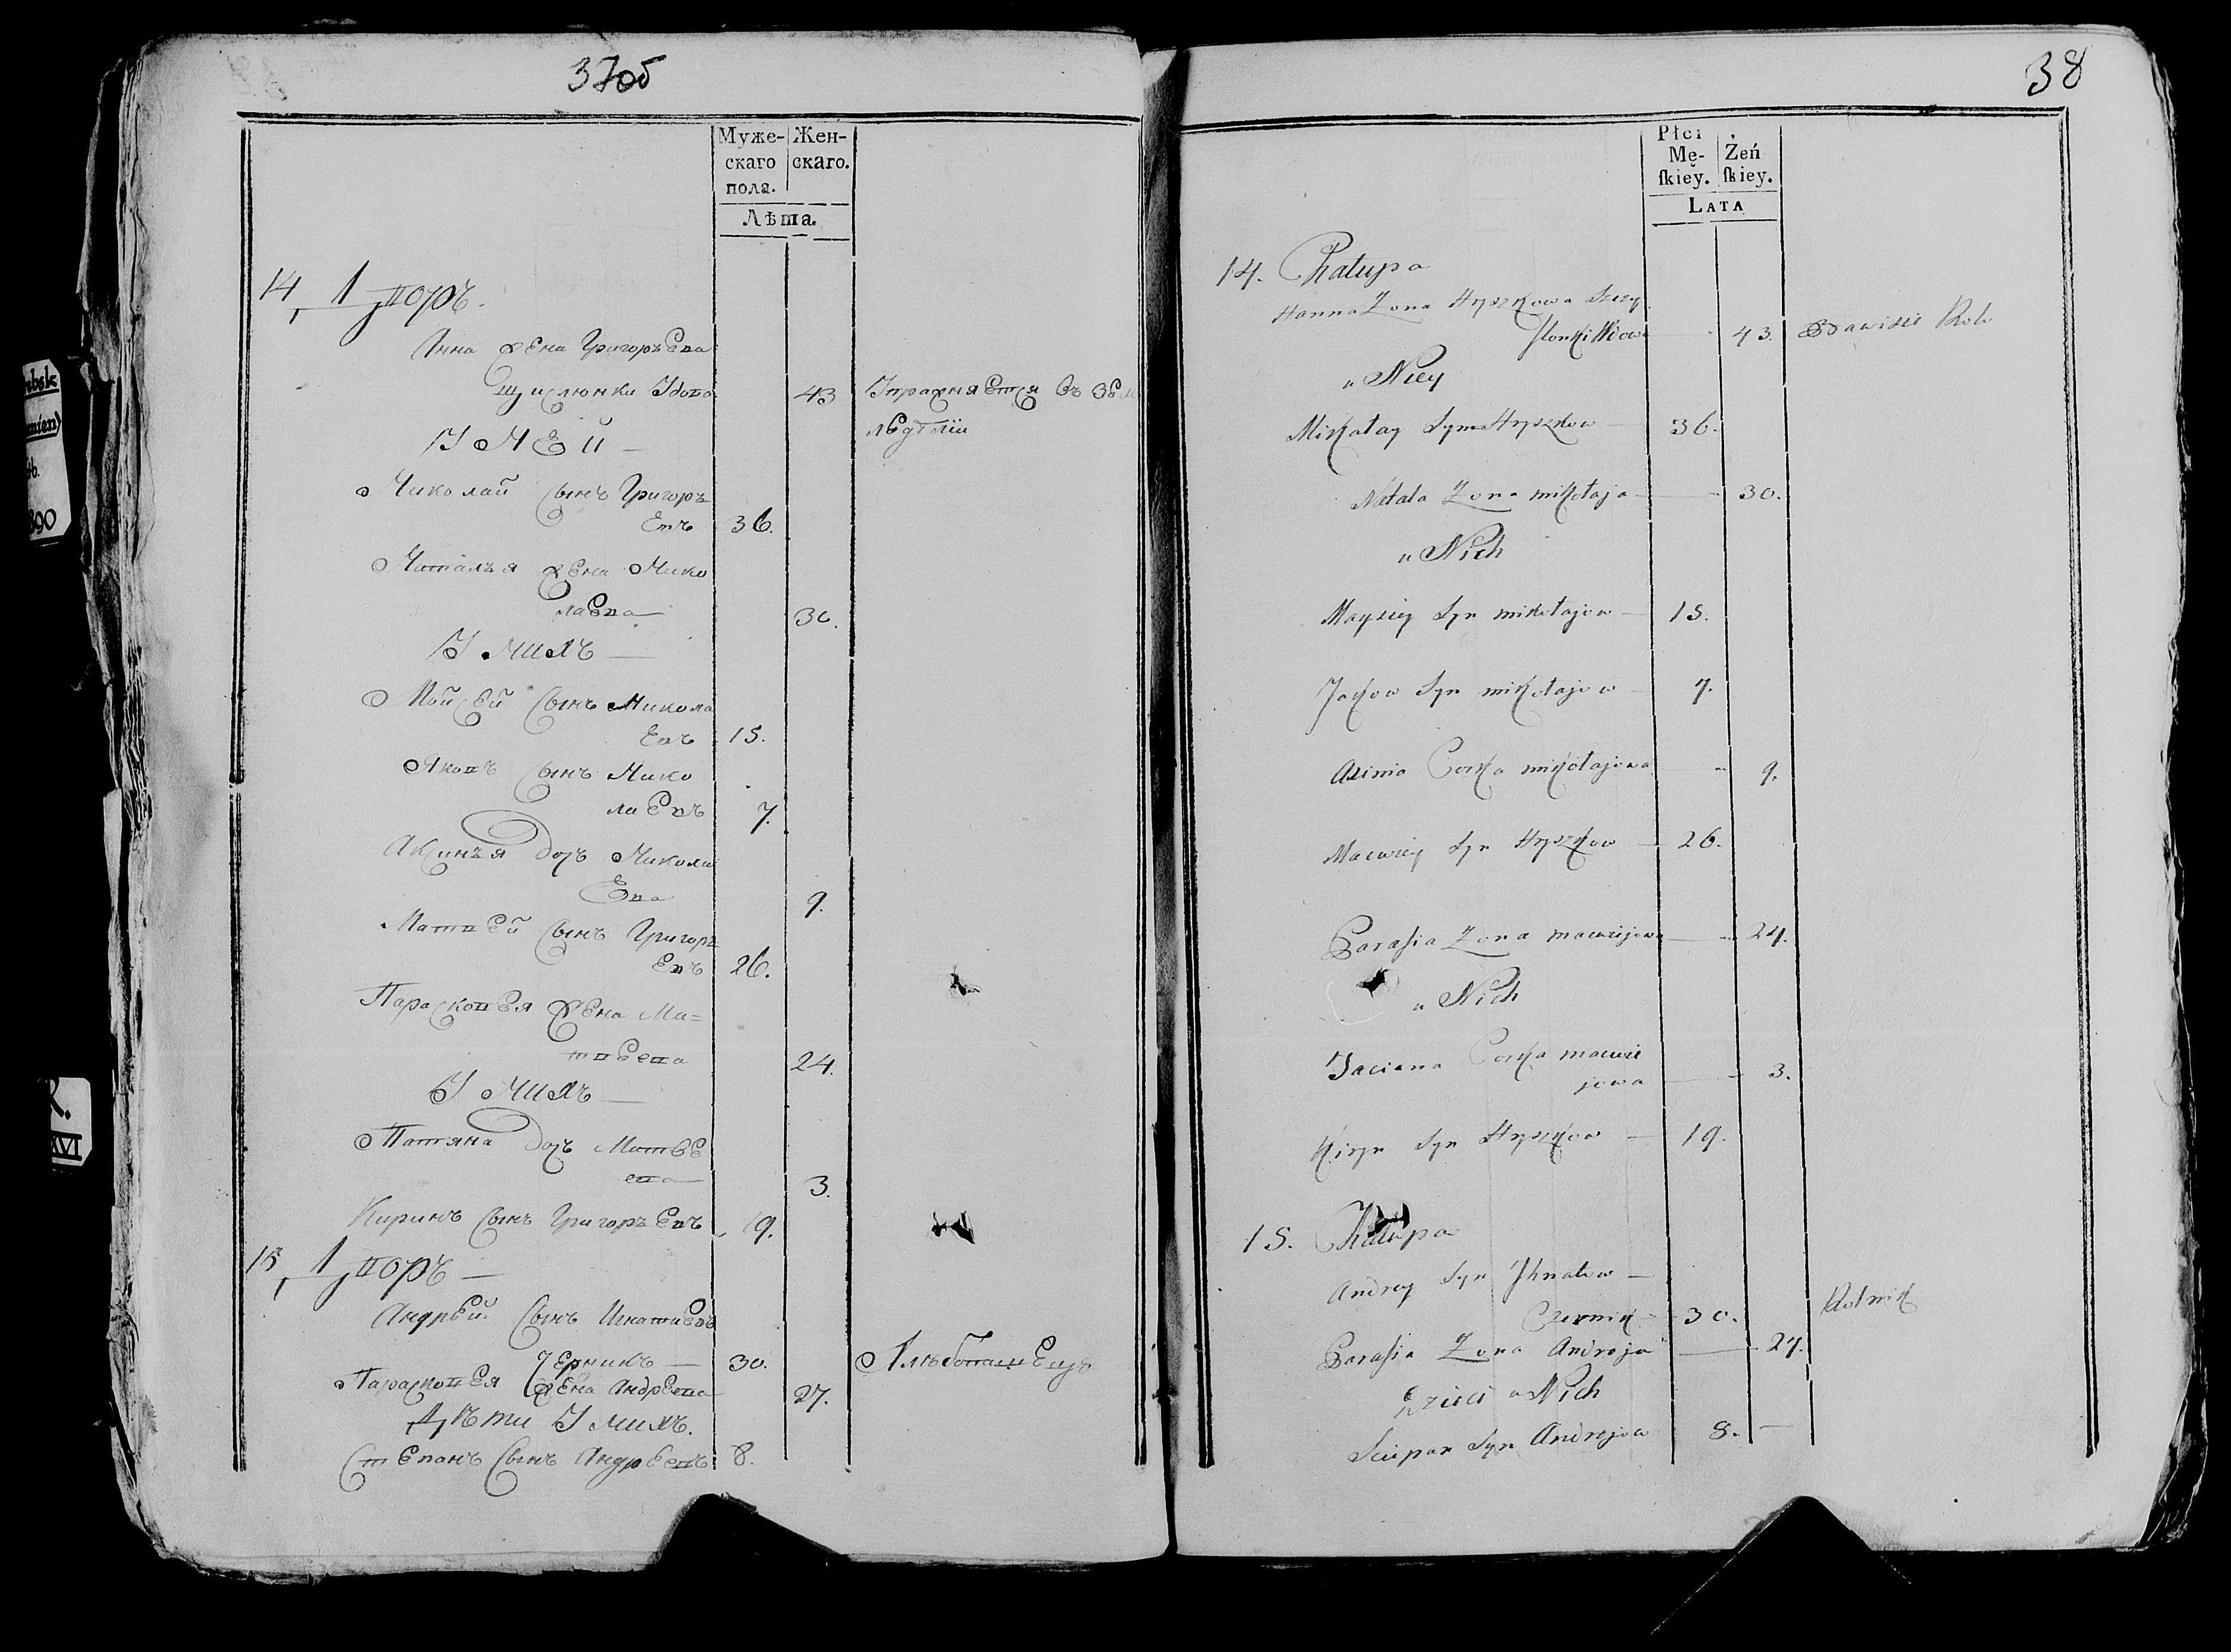 37об
Муже-
скаго
пола.
Жен-
скаго.
Лѣта.
14, Дворъ.
Анна жена Григорьева
Щислюнки Вдова 43 Упражняется въ зем
ледѣліи
У Ней
Николай сынъ Григорь
евъ 36.
Наталья жена Нико
лаева 30.
У нихъ
Мойсей сынъ Никола
евъ 15.
Яковъ сынъ Нико
лаевъ 7.
Аксинья дочь Никола
ева 9.
Матвей сынъ Григорь
евъ 26.
Парасковея жена Ма=
твеева 24.
У нихъ
Татяна дочь Матвѣ
ева 3.
Киринъ сынъ Григорьевъ 19.
15, Дворъ
Андрей сынъ Игнатиевъ
Черникъ 30. Хлѣбопашецъ
Парасковея жена Андреева 27.
Дѣти у нихъ.
Степанъ сынъ Андреевъ 8.
38
Płci
Mę-
ſkiey.
Żeń
ſkiey.
LATA
14. Chałupa
Hanna Zona Hryszkowa
43.
u Niey
Mikołay Syn Hryszkow 36.
Natala Zona mikołaja 30.
u Nich
Maysiey Syn mikołajow 15.
Jakow Syn mikołajow 7.
Axinia Corka mikołajowa 9.
Maciviey Syn Hryszkow 26.
Paraſia Zona maciviejowa 24.
u Nich
Taciana Corka macivie
jowa 3.
Kiryn Syn Hryszkow 19.
15. Chałupa
Andrey Syn Ihnatow
Czernik 30. Rolnik
Paraſia Zona Andreja 27.
Dzieci u Nich
Sciepan Syn Andrejow 8.